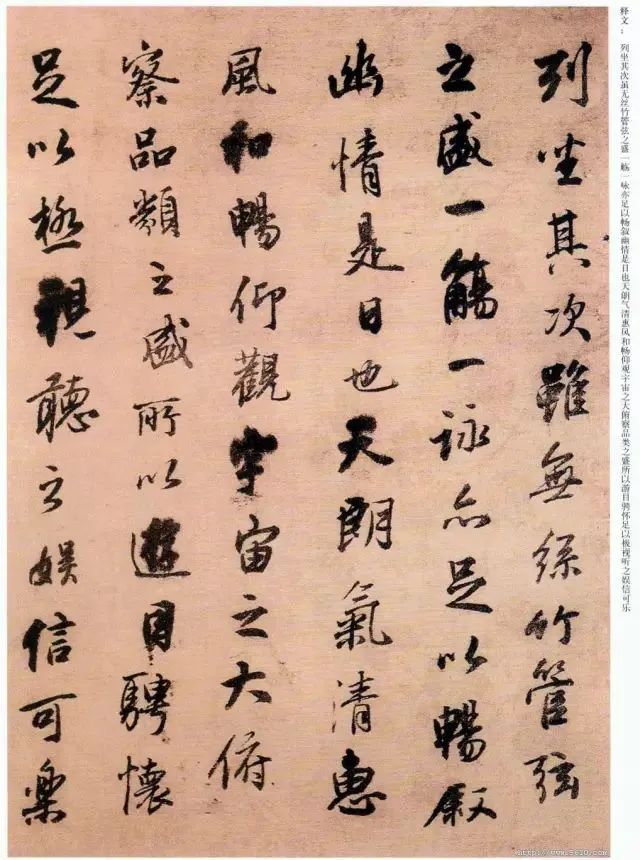 释文：列坐其次虽无丝竹管弦之盛一觞一咏亦足以畅叙幽情是日也天朗气清惠风和畅仰观宇宙之大俯察品类之盛所以游目骋怀足以极视听之娱信可乐
列坐其次雖無絲竹管弦
之盛一觴一詠亦足以暢叙
幽情是日也天朗氣清惠
風和暢仰觀宇宙之大俯
察品類之盛所以遊目騁懷
足以極視聽之娱信可樂